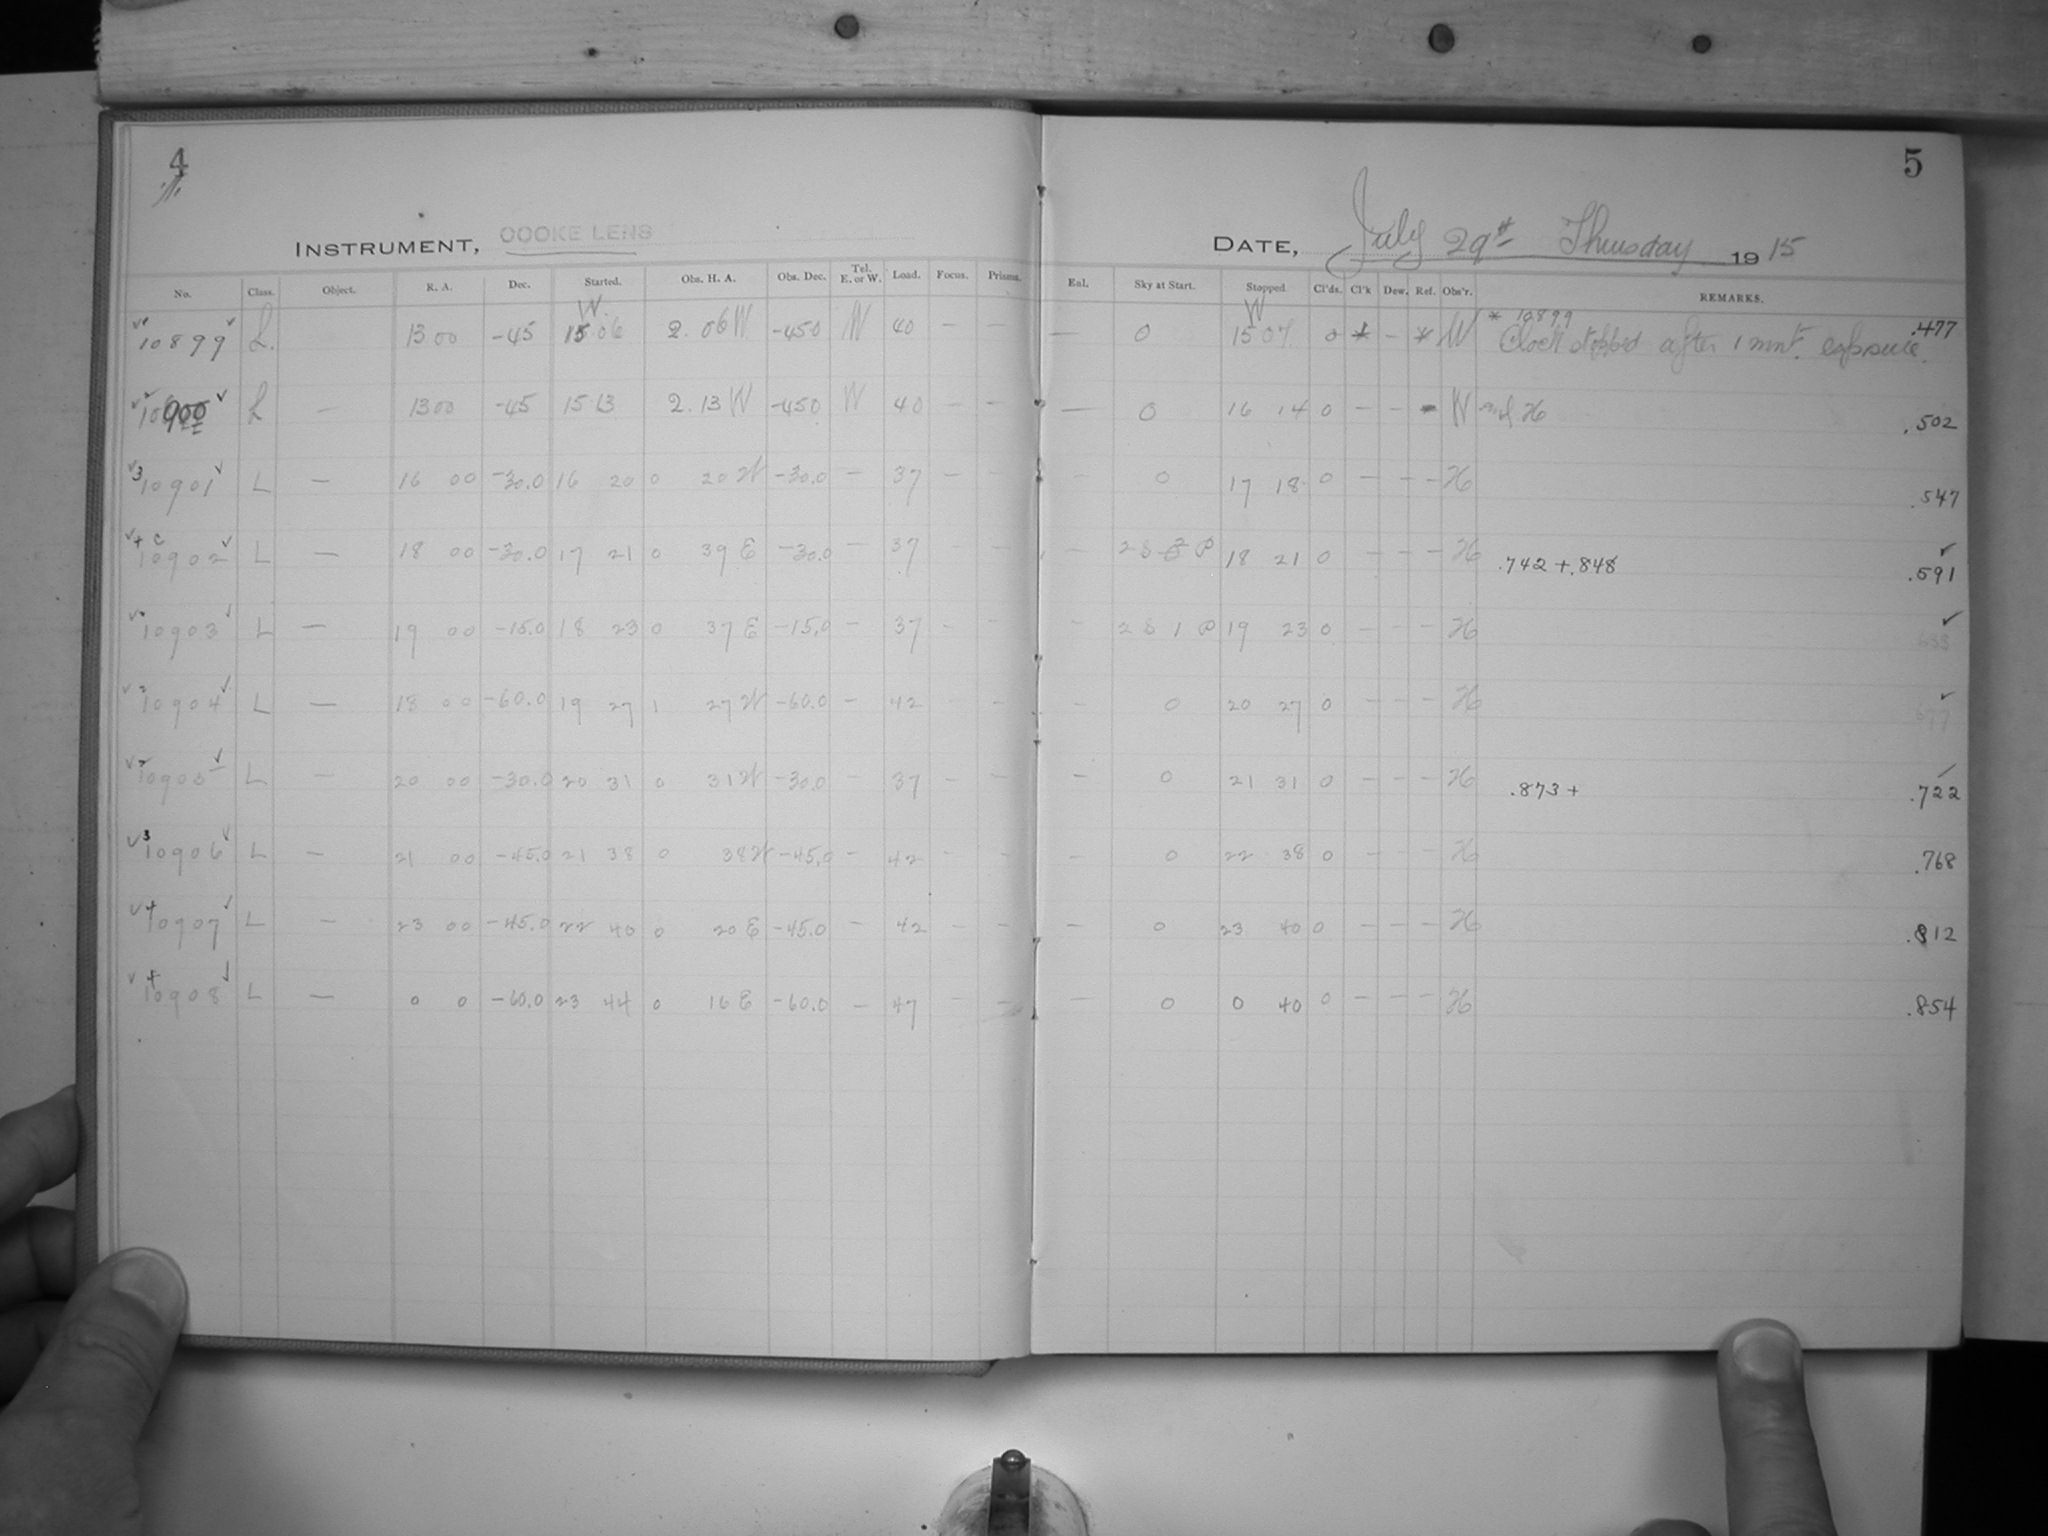 4
5
INSTRUMENT, COOKE LENS
DATE, July 29th Thursday 1915
No. Class. Object. R. A. Dec. Started. Obs. H. A. Obs. Dec. Tel. E. or W. Load. Focus. Prisms. Eal. Sky at Start. Stopped Cl'ds. Cl'k Dew. Ref. Obs'r. REMARKS.
W. W * 10899
10899 L. 13 00 -45 15 06 2. 06 W -450 W 40 - - — 0 15 07 0 * - * W Clock stopped after 1 mnt. exposure. .477
10900 L — 13 00 -45 15 13 2. 13 W -450 W 40 - - — 0 16 14 0 - - - W and H .502
10901 L — 16 00 -30.0 16 20 0 20 W -30.0 - 37 - - - 0 17 18 0 - - - H .547
10902 L — 18 00 -30.0 17 21 0 39 E -30.0 - 37 - - - 18 21 0 - - - H .742 + .848 .591
10903 L — 19 00 -15.0 18 23 0 37 E -15.0 - 37 - - - 2 S 1 P 19 23 0 - - - H 633
10904 L — 18 00 -60.0 19 27 1 27 W -60.0 - 42 - - - 0 20 27 0 - - - H 677
10905 L — 20 00 -30.0 20 31 0 31 W -30.0 - 37 - - - 0 21 31 0 - - - H .873 + .722
10906 L — 21 00 -45.0 21 38 0 38 W -45.0 - 42 - - - 0 22 38 0 - - - H .768
10907 L — 23 00 -45.0 22 40 0 20 E -45.0 - 42 - - - 0 23 40 0 - - - H .812
10908 L — 0 0 -60.0 23 44 0 16 E -60.0 - 47 - - - 0 0 40 0 - - - H .854